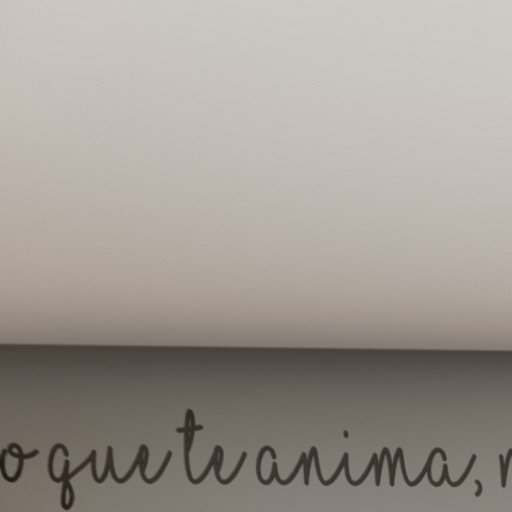 o que te anima,